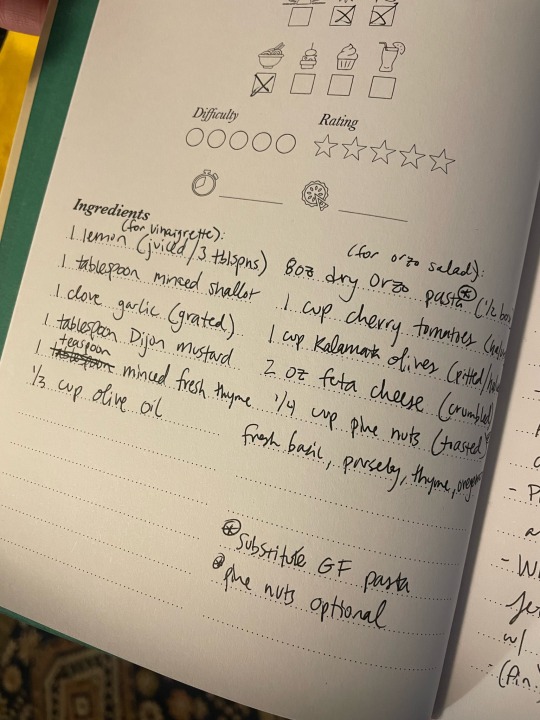 Difficulty
Rating
Ingredients
(for vinaigrette):
1 lemon (juiced/3 tblspns)
1 tablespoon minced shallot
1 clove garlic (grated)
1 tablespoon Dijon mustard
1 teaspoon minced fresh thyme
1/3 cup olive oil
(for orzo salad):
8oz dry orzo pasta (1/2
1 cup cherry tomatoes
1 cup Kalamata olives (pitted/
2 oz feta cheese (crumbled)
1/4 cup pine nuts (toasted)
fresh basic, parsely, thyme,
Substitute GF pasta
pine nuts optional
w/